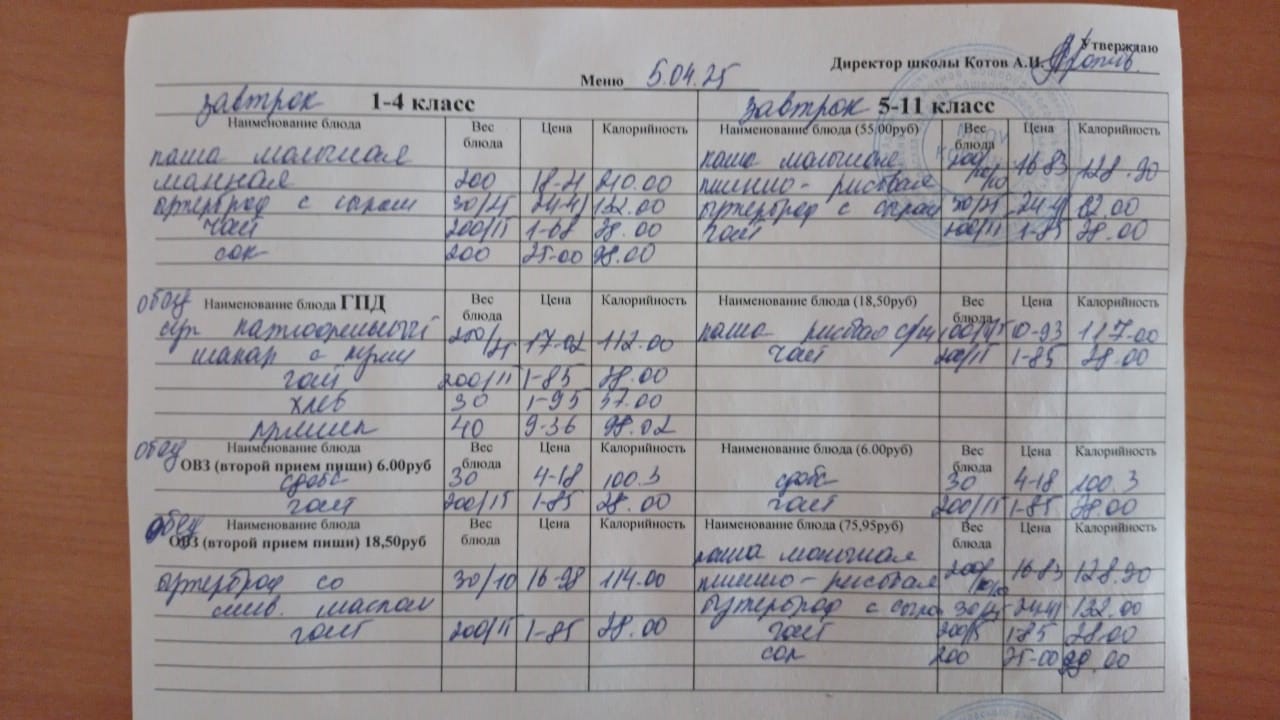 Утверждаю
Директор школы Котов А.И.
Меню 5.04.25
завтрак 1-4 класс
завтрак 5-11 класс
Наименование блюда Вес блюда Цена Калорийность
Наименование блюда (55,00руб) Вес блюда Цена Калорийность
каша молочная
манная 200 210.00
бутерброд с сыром 30/25 24-41 132.00
чай 200/15 28.00
сок 200 25-00 98.00
каша молочная 16-83 128.90
пшенно-рисовая
бутерброд с сыром 30/25 24-41
чай 200/15 1-85 28.00
обед Наименование блюда ГПД Вес блюда Цена Калорийность
Наименование блюда (18,50руб) Вес блюда Цена Калорийность
суп картофельный 17-02 112.00
чай 200/15 1-85 28.00
хлеб 30 1-95 57.00
пряник 40 9-36 98.02
каша 10-93 117.00
чай 200/15 1-85 28.00
обед Наименование блюда Вес блюда Цена Калорийность
ОВЗ (второй прием пищи) 6.00руб
Наименование блюда (6.00руб) Вес блюда Цена Калорийность
сдоба 30 4-18 100.3
чай 200/15 1-85 28.00
сдоба 30 4-18 100.3
чай 200/15 1-85 28.00
обед Наименование блюда Вес блюда Цена Калорийность
ОВЗ (второй прием пищи) 18,50руб
Наименование блюда (75,95руб) Вес блюда Цена Калорийность
бутерброд со 30/10 16-98 114.00
слив. маслом
чай 200/15 1-85 28.00
каша молочная
пшенно-рисовая 16-83 128.90
бутерброд с сыром 30/25 24-41 132.00
чай 200/15 1-85 28.00
сок 200 25-00 98.00